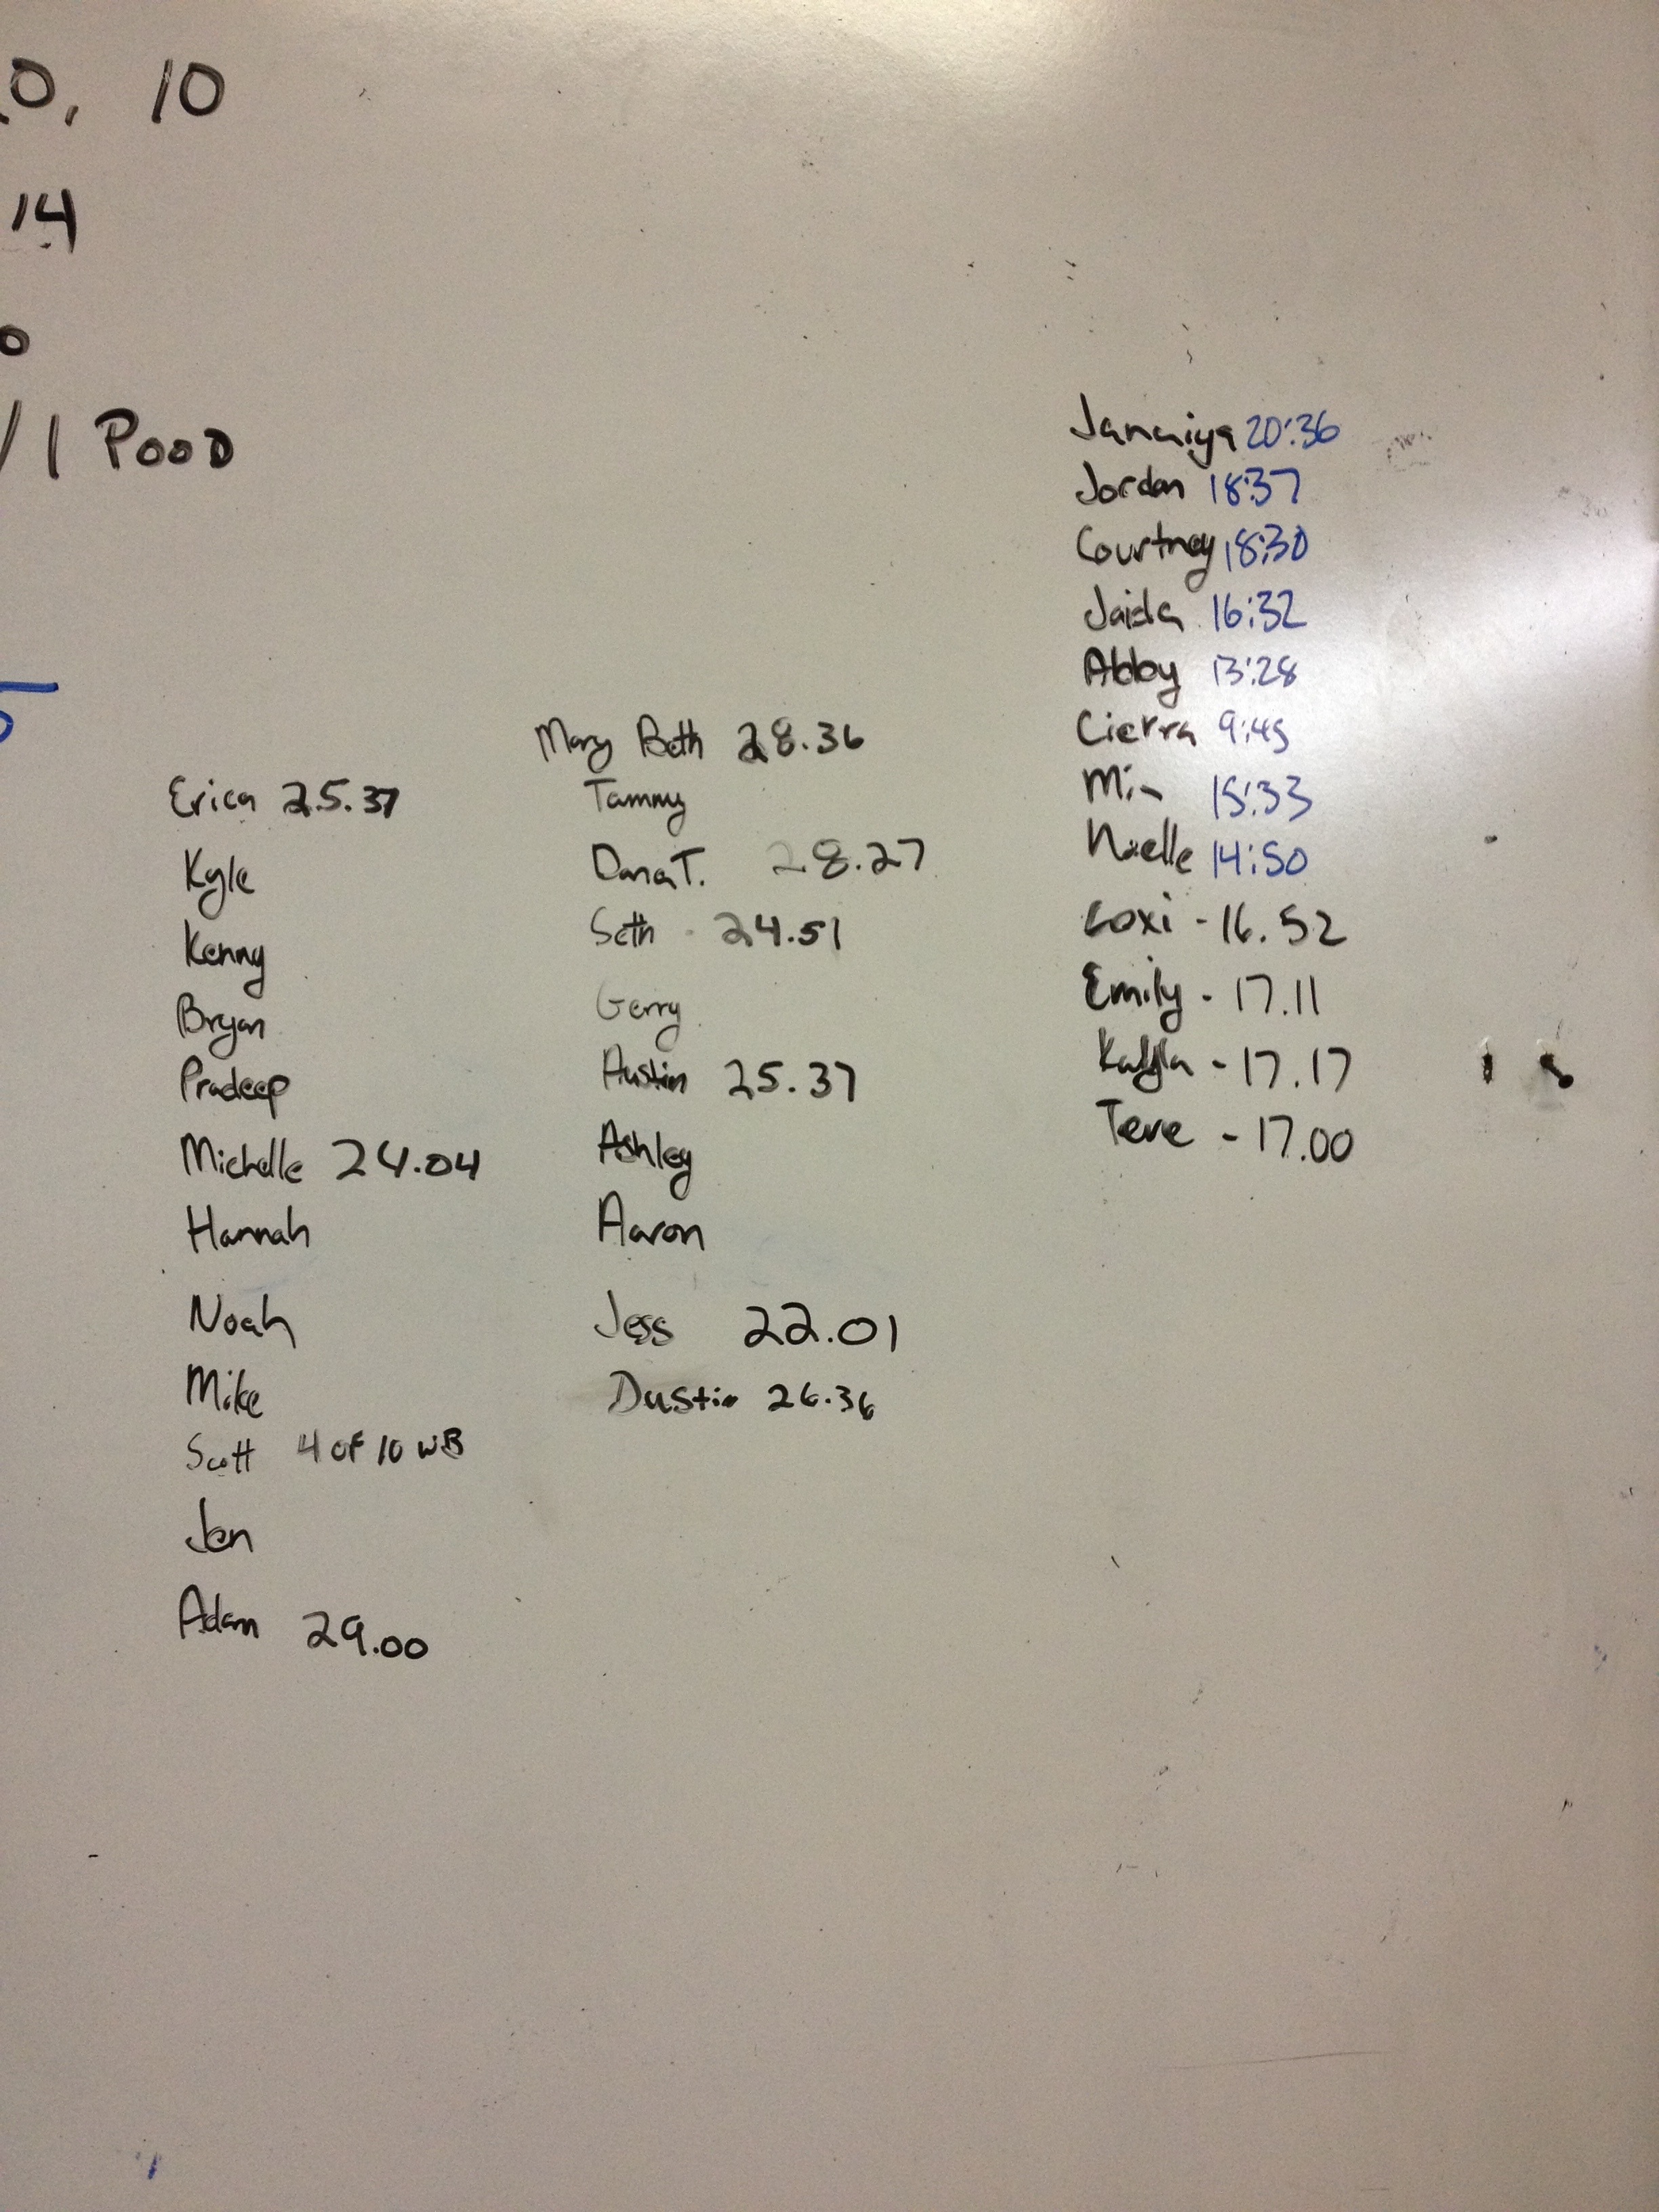 0, 10
14
0
/ 1 POOD
Erica 25.37
Kyle
Kenny
Bryan
Pradeep
Michelle 24.04
Hannah
Noah
Mike
Scott 4 OF 10 WB
Jen
Adam 29.00
Mary Beth 28.36
Tammy
Dana T. 28.27
Seth 24.51
Gerry
Austin 25.37
Ashley
Aaron
Jess 22.01
Dustin 26.36
Janaiya 20:36
Jordan 18:37
Courtney 18:30
Jaida 16:32
Abby 13:28
Cierra 9:45
15:33
Noelle 14:50
- 16.52
Emily - 17.11
Kayla - 17.17
Tere - 17.00